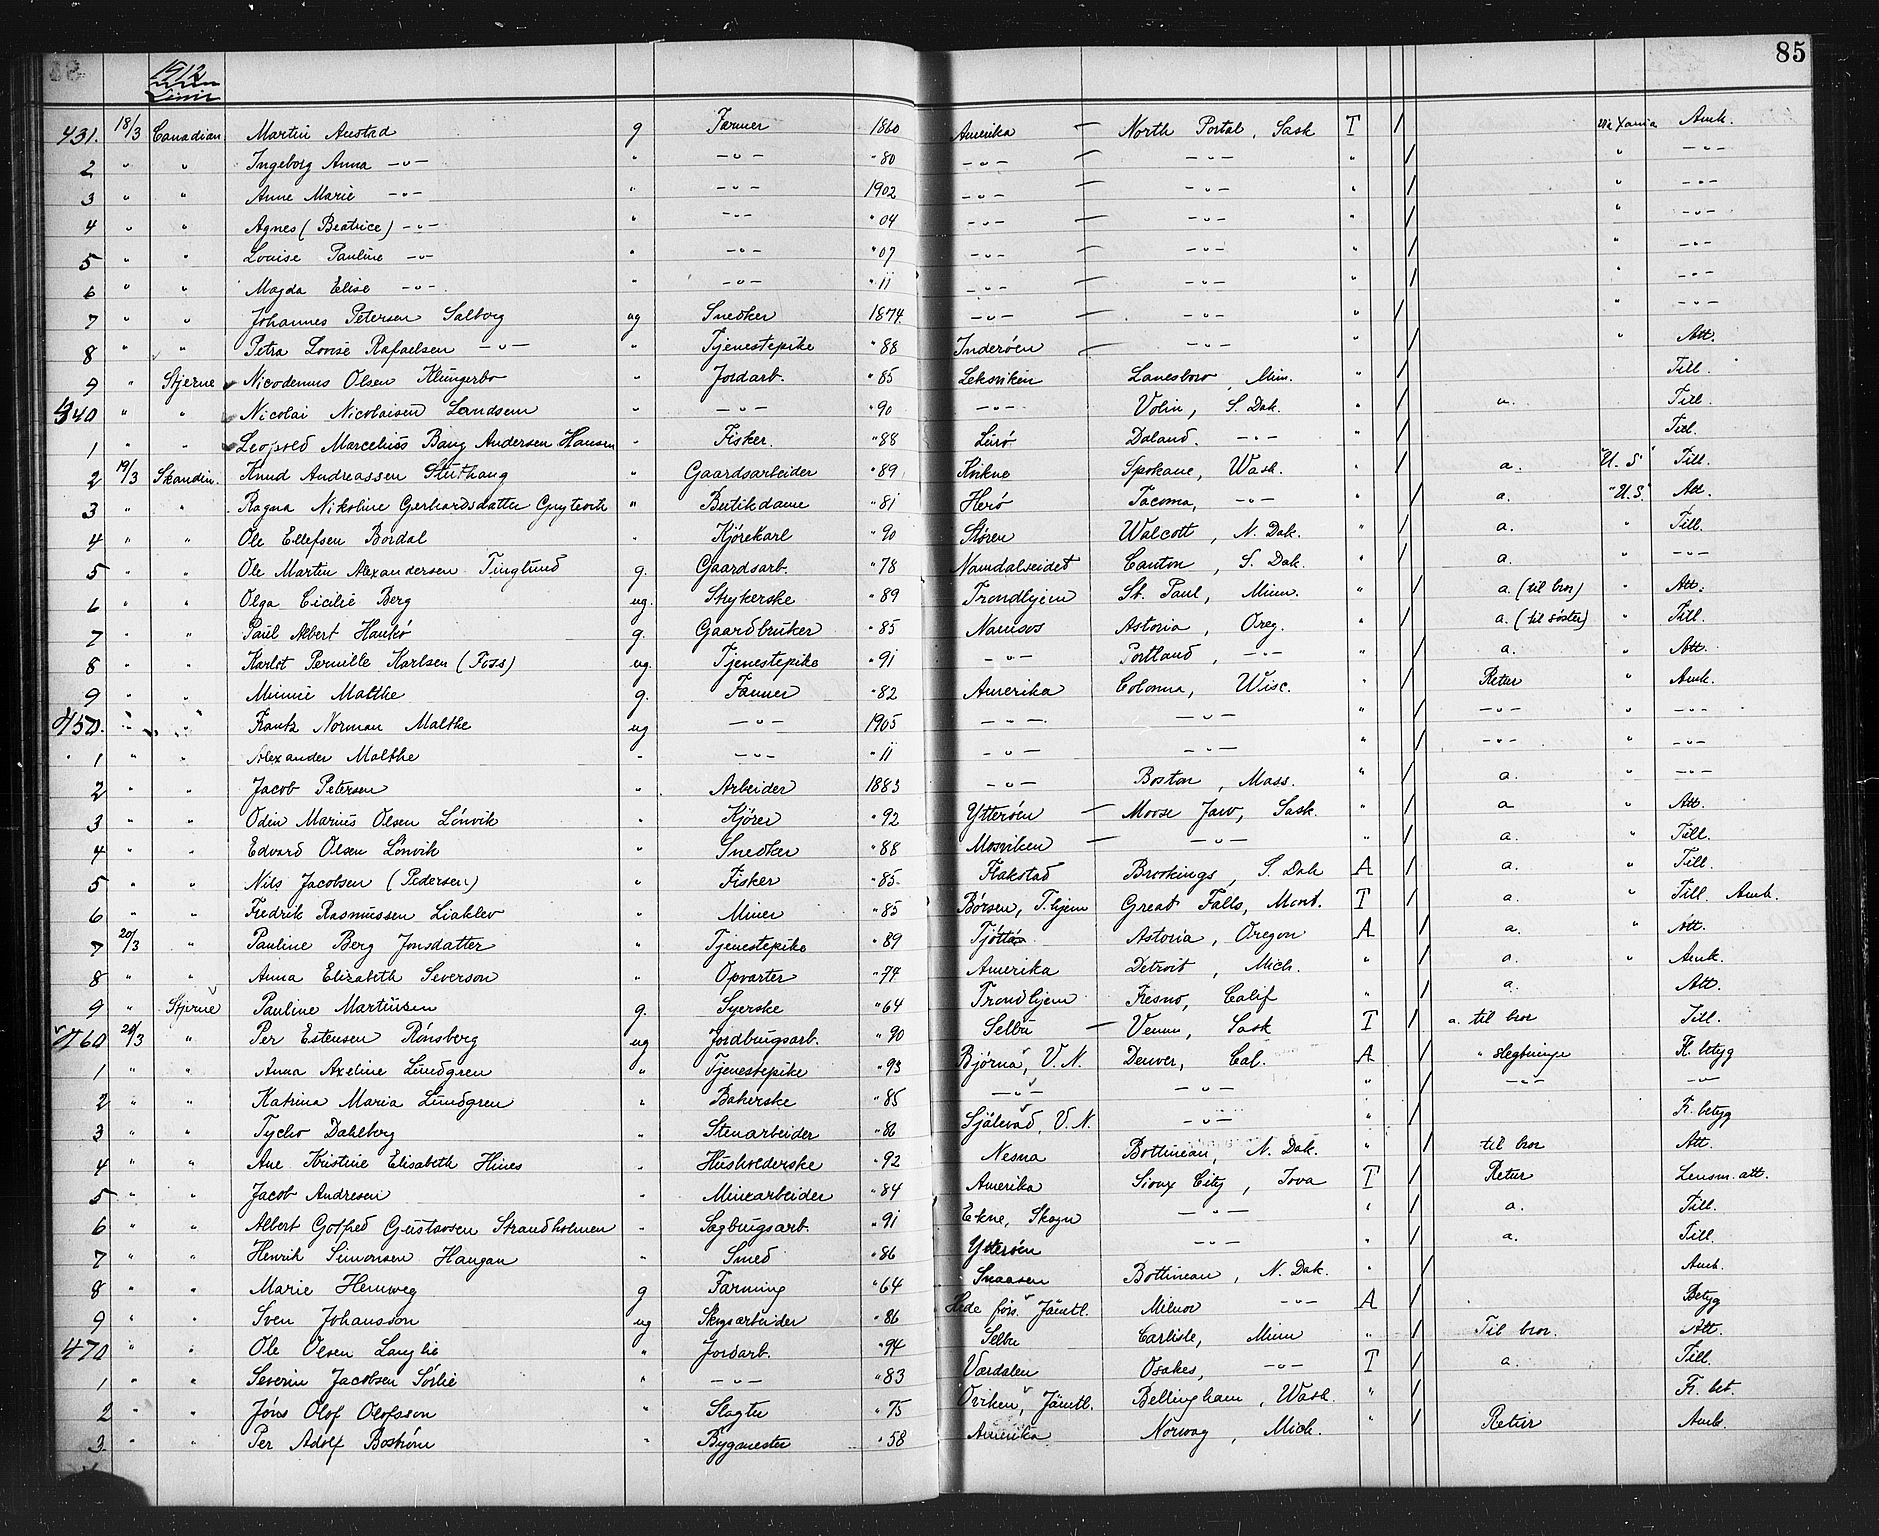 1912 85
Linie
431. 18/3 Canadian Martin Anstad g Farmer 1860 Amerika — North Portal, Sask T / via Xania Amk.
2 " " Ingeborg Anna —"— " —"— "80 —"— — —"— " / " —"—
3 " " Anne Marie —"— " —"— 1902 —"— — —"— " / " —"—
4 " " Agnes (Beatrice) —"— " —"— "04 —"— — —"— " / " —"—
5 " " Louise Pauline —"— " —"— "07 —"— — —"— " / " —"—
6 " " Magda Elise —"— " —"— "11 —"— — —"— " / " —"—
7 " " Johannes Petersen Salborg ug Snedker 1874. —"— — —"— " / " —"—
8 " " Petra Lovise Rafaelsen —"— " Tjenestepike "88 Inderøen — —"— " / " Att.
9 " Stjerne Nicodemus Olsen Klungerbo " Jordarb. "85 Leksviken Lanesboro, Min. " / Till.
440 " " Nicolai Nicolaisen Landsem " —"— "90 —"— Volin, S. Dak. " / a. Till.
1 " " Leopold Marcelius Bang Andersen Hansen " Fisker. "88 Daland. —"— " / Till.
2 19/3 Skandin. Knud Andreassen " Gaardsarbeider "89 Kvikne Spokane, Wash. " / a. "U.S" Till.
3 " " Ragna Nikoline Gerhardsdatter " Butikdame "81 Herø Tacoma, —"— / a. "U.S." Att.
4 " " Ole Ellefsen Bordal " Kjørekarl "90 Støren Walcott, N. Dak. " / a. " Till.
5 " " Ole Martin Alexandersen Tinglund g. Gaardsarb. "78 Namdalseidet Canton, S. Dak. " / a. " —"—
6 " " Olga Cicilie Berg ug. Strykerske "89 Trondhjem St. Paul, Minn. " / a. (til bror) " Att.
7 " " Paul Albert Hankø g. Gaardbruker "85 Namsos Astoria, Oreg. " / a. (til søster) " Till.
8 " " Karlot Pernille Karlsen (Foss) ug. Tjenestepike "91 —"— Portland, —"— " / a. " Att.
9 " " Minnie Malthe g. Farmer "82 Amerika Coloma, Wisc. " / Retur " Amk.
450. " " Frantz Norman Malthe ug —"— 1905 —"— —"— " / —"— " —"—
1 " " Alexander Malthe " —"— "11 —"— —"— " / —"— " —"—
2 " " Jacob Petersen " Arbeider 1883 —"— Boston, Mass. " / a. " —"—
3 " " Odin Marius Olsen Lønvik " Kjører "92 Ytterøen — Moose Jaw, Sask. " / a " Att.
4 " " Edvard Olsen Lønvik " Snedker "88 Mosviken — —"— " / a. " Till.
5 " " Nils Jacobsen (Pedersen) " Fisker "85. Flakstad Brookings, S. Dak A / a. " Till.
6 " " Fredrik Rasmussen Liaklev " Miner "85 Børsen, T.hjem Great Falls, Mont. T / a. " Till. Amk.
7 20/3 " Pauline Berg Jonsdatter " Tjenestepike "89 Tjøtta Astoria, Oregon A / a. " Att.
8 " " Anna Elizabeth Severson " Opvarter "74 Amerika Detroit, Mich. " / a. " Amk.
9 " Stjerne Pauline Martinsen g. Syerske "64 Trondhjem Fresno, Calif " / a. Att.
460 /3 " Per Estensen Rønsberg ug Jordbrugsarb. "90 Selbu — Venn, Sask T / a. til bror Till.
1 " " Anna Axeline Lundgren " Tjenestepike "93 Bjørna, V. N. Denver, Cal. A / " slegtninge Fl. betyg
2 " " Katrina Maria Lundgren " Bakerske "85 —"— —"— " / —"— —"—
3 " " Tycho Dahlberg " Stenarbeider "86 Själevad, V. N. —"— " / Fl. betyg
4 " " Ane Kristine Elisabeth Hines " Husholderske "92 Nesna Bottineau, N. Dak. " / til bror Att.
5 " " Jacob Andresen " Minearbeider "84 Amerika Sioux City, Iova T / Retur Lensm. att.
6 " " Albert Gotfred Gustavsen Strandholmen " Sagbrugsarb. "91 Ekne, Skogn —"— " / a. Till.
7 " " Henrik Simonsen Haugan " Smed "86 Ytterøen —"— " / a. Till.
8 " " Marie Hemweg g Farming "64 Snaasen Bottineau, N. Dak. " / Amk.
9 " " Sven Johansson ug Skogsarbeider "86 Hede förs. Jämtl. Milnor —"— A / Betyg
470 " " Ole Olsen Langlie " Jordarb. "94 Selbu Carlisle, Minn " / Til bror. Att.
1 " " Severin Jacobsen Sørlie " —"— "83 Værdalen Osakes, —"— T / a. Till.
2 " " Jøns Olof Olofsson " Slagter "75 Oviken, Jämtl. Bellingham, Wash. " / Fl. bet.
3 " " Per Adolf Bostrøm " Bygmester "58 Amerika Norway, Mich. " / Retur Amk.